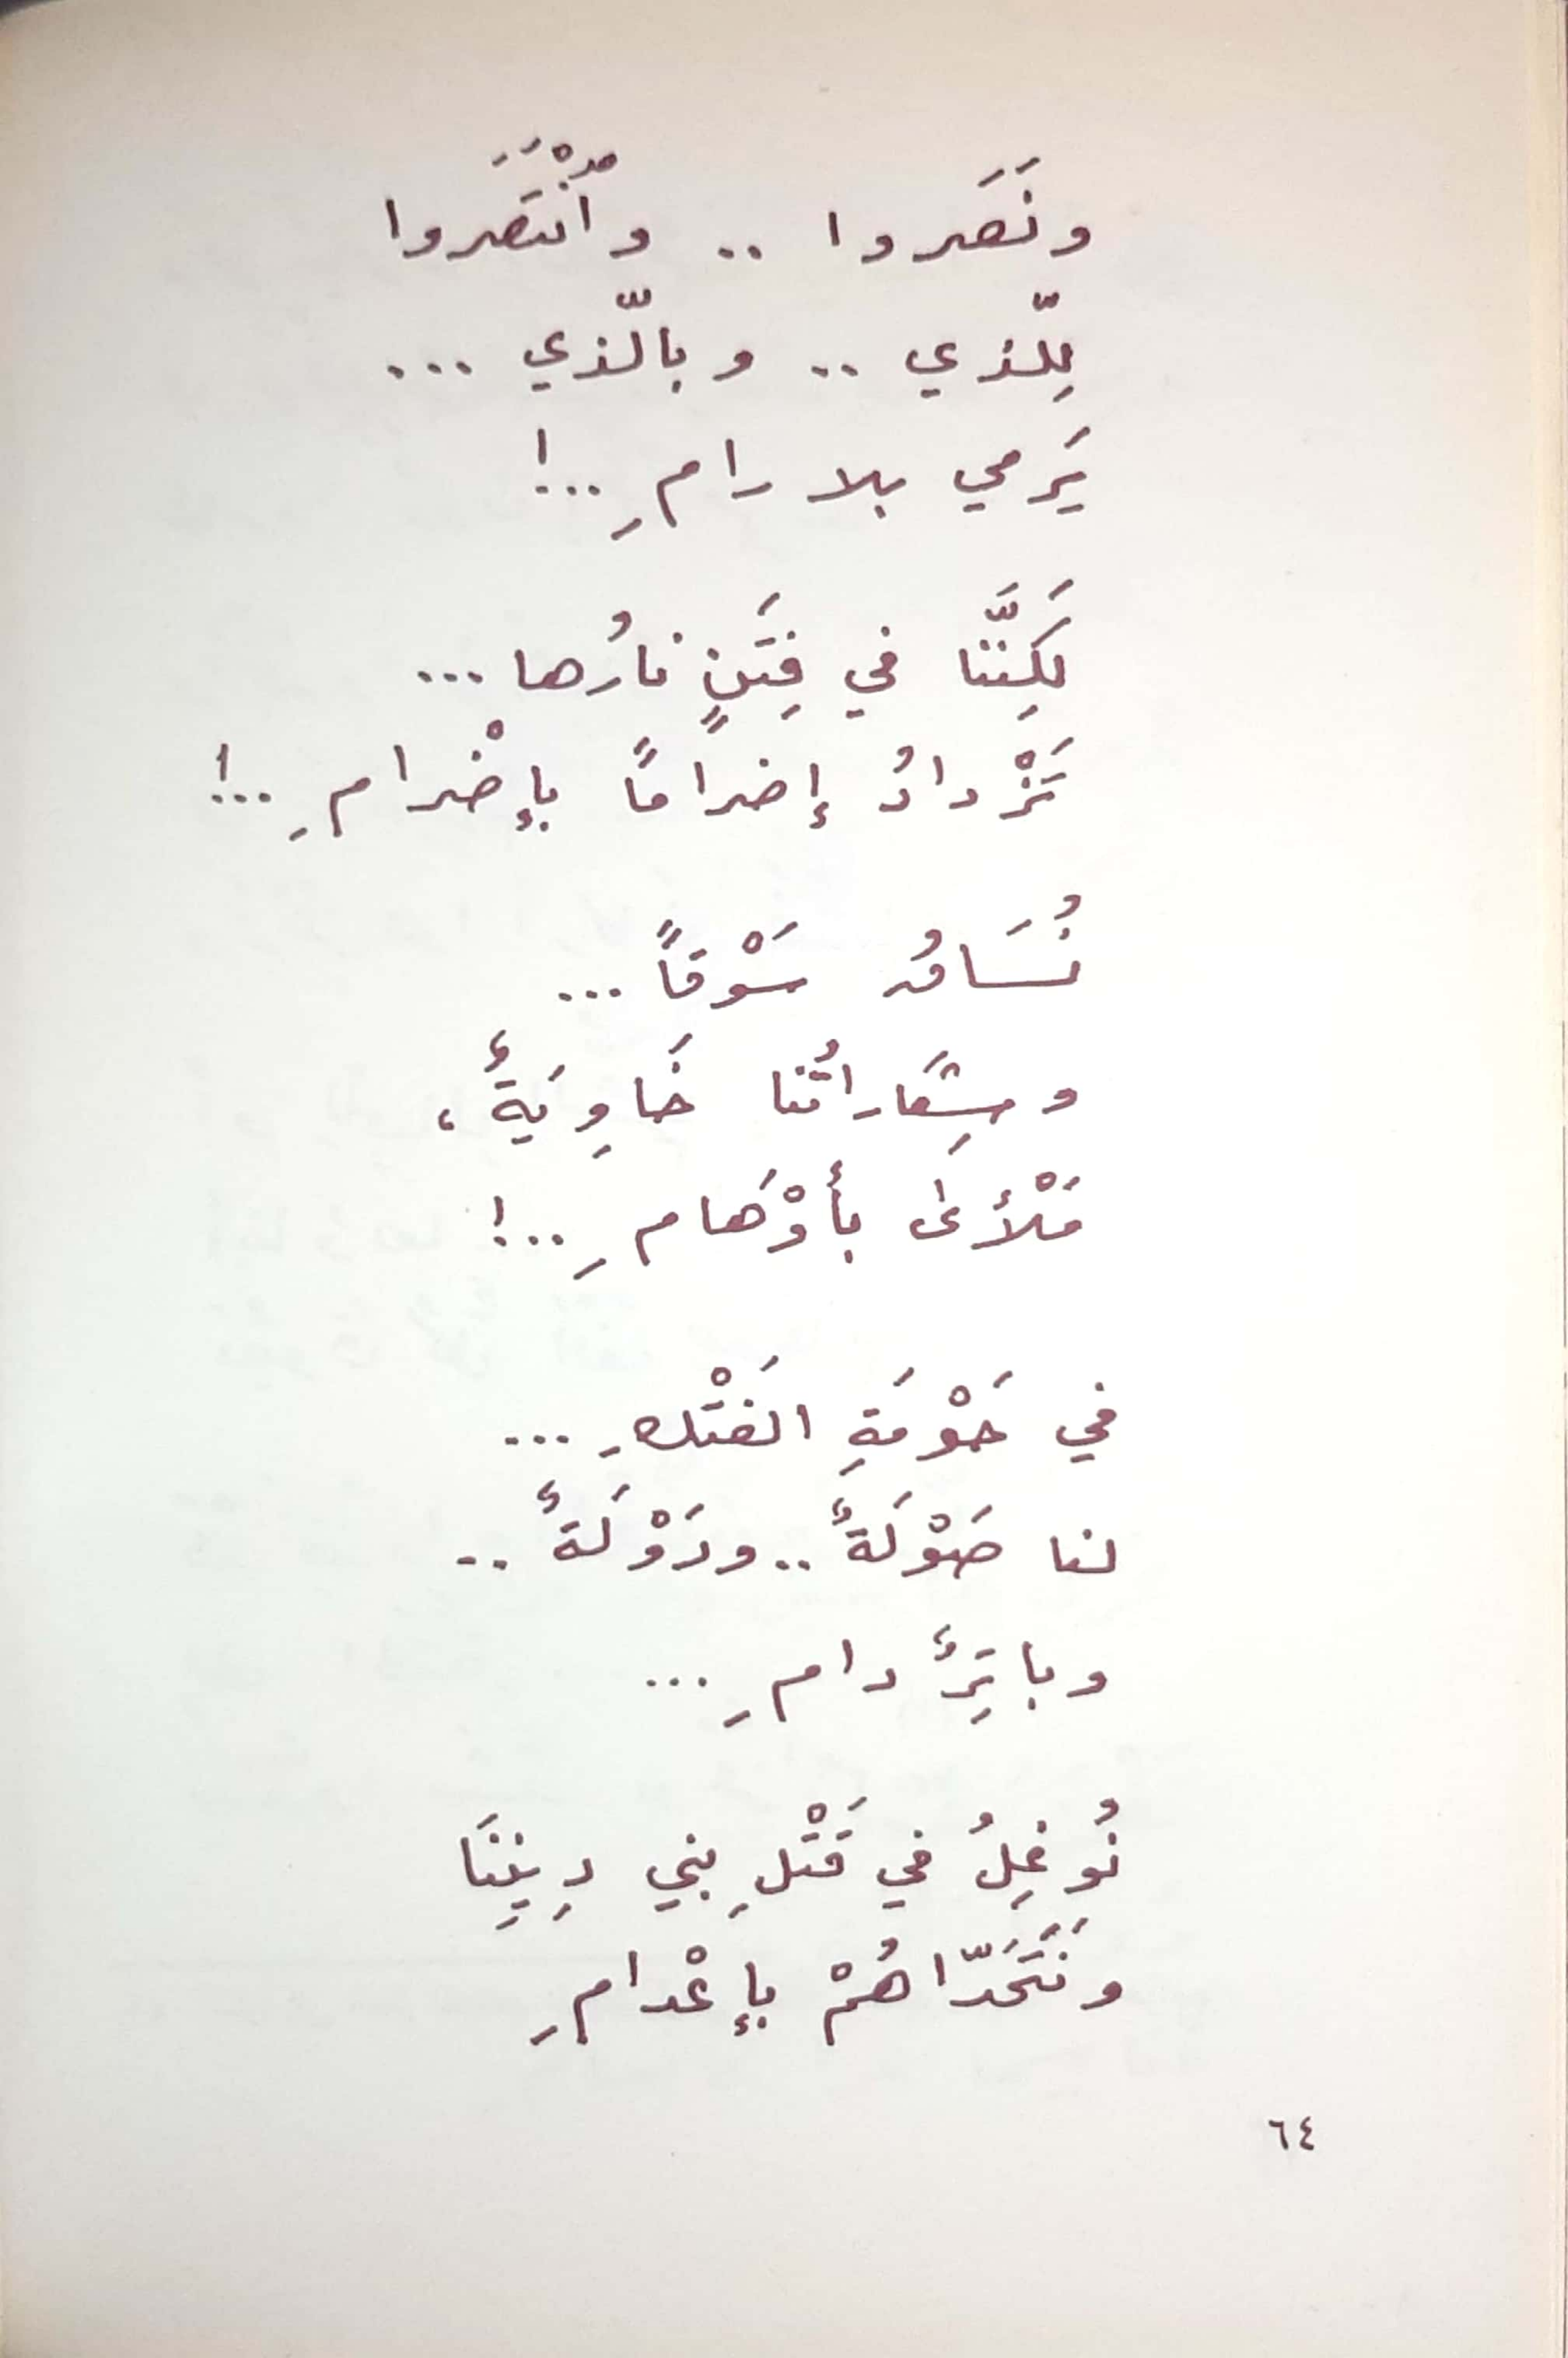 ونَصَروا .. وٱنْتَصَروا
لِلّذي .. وبالّذي ...
يَرمي بلا رامِ ..!
لَكِنَّنا في فِتَنٍ نارُها ...
تَزْدادُ إضراماً بإضْرامِ ..!
نُسَاقُ سَوْقاً ...
وشِعَاراتُنا خَاوِيَةٌ ،
مَلْأىٰ بأوْهَامِ ..!
في حَوْمَةِ الفَتْكِ ...
لنا صَوْلَةٌ .. ودَوْلَةٌ ..
وباتِرٌ دامِ ...
نُوغِلُ في قَتْلِ بني دِينِنَا
ونَتَحَدّاهُمْ بإعْدامِ
٦٤